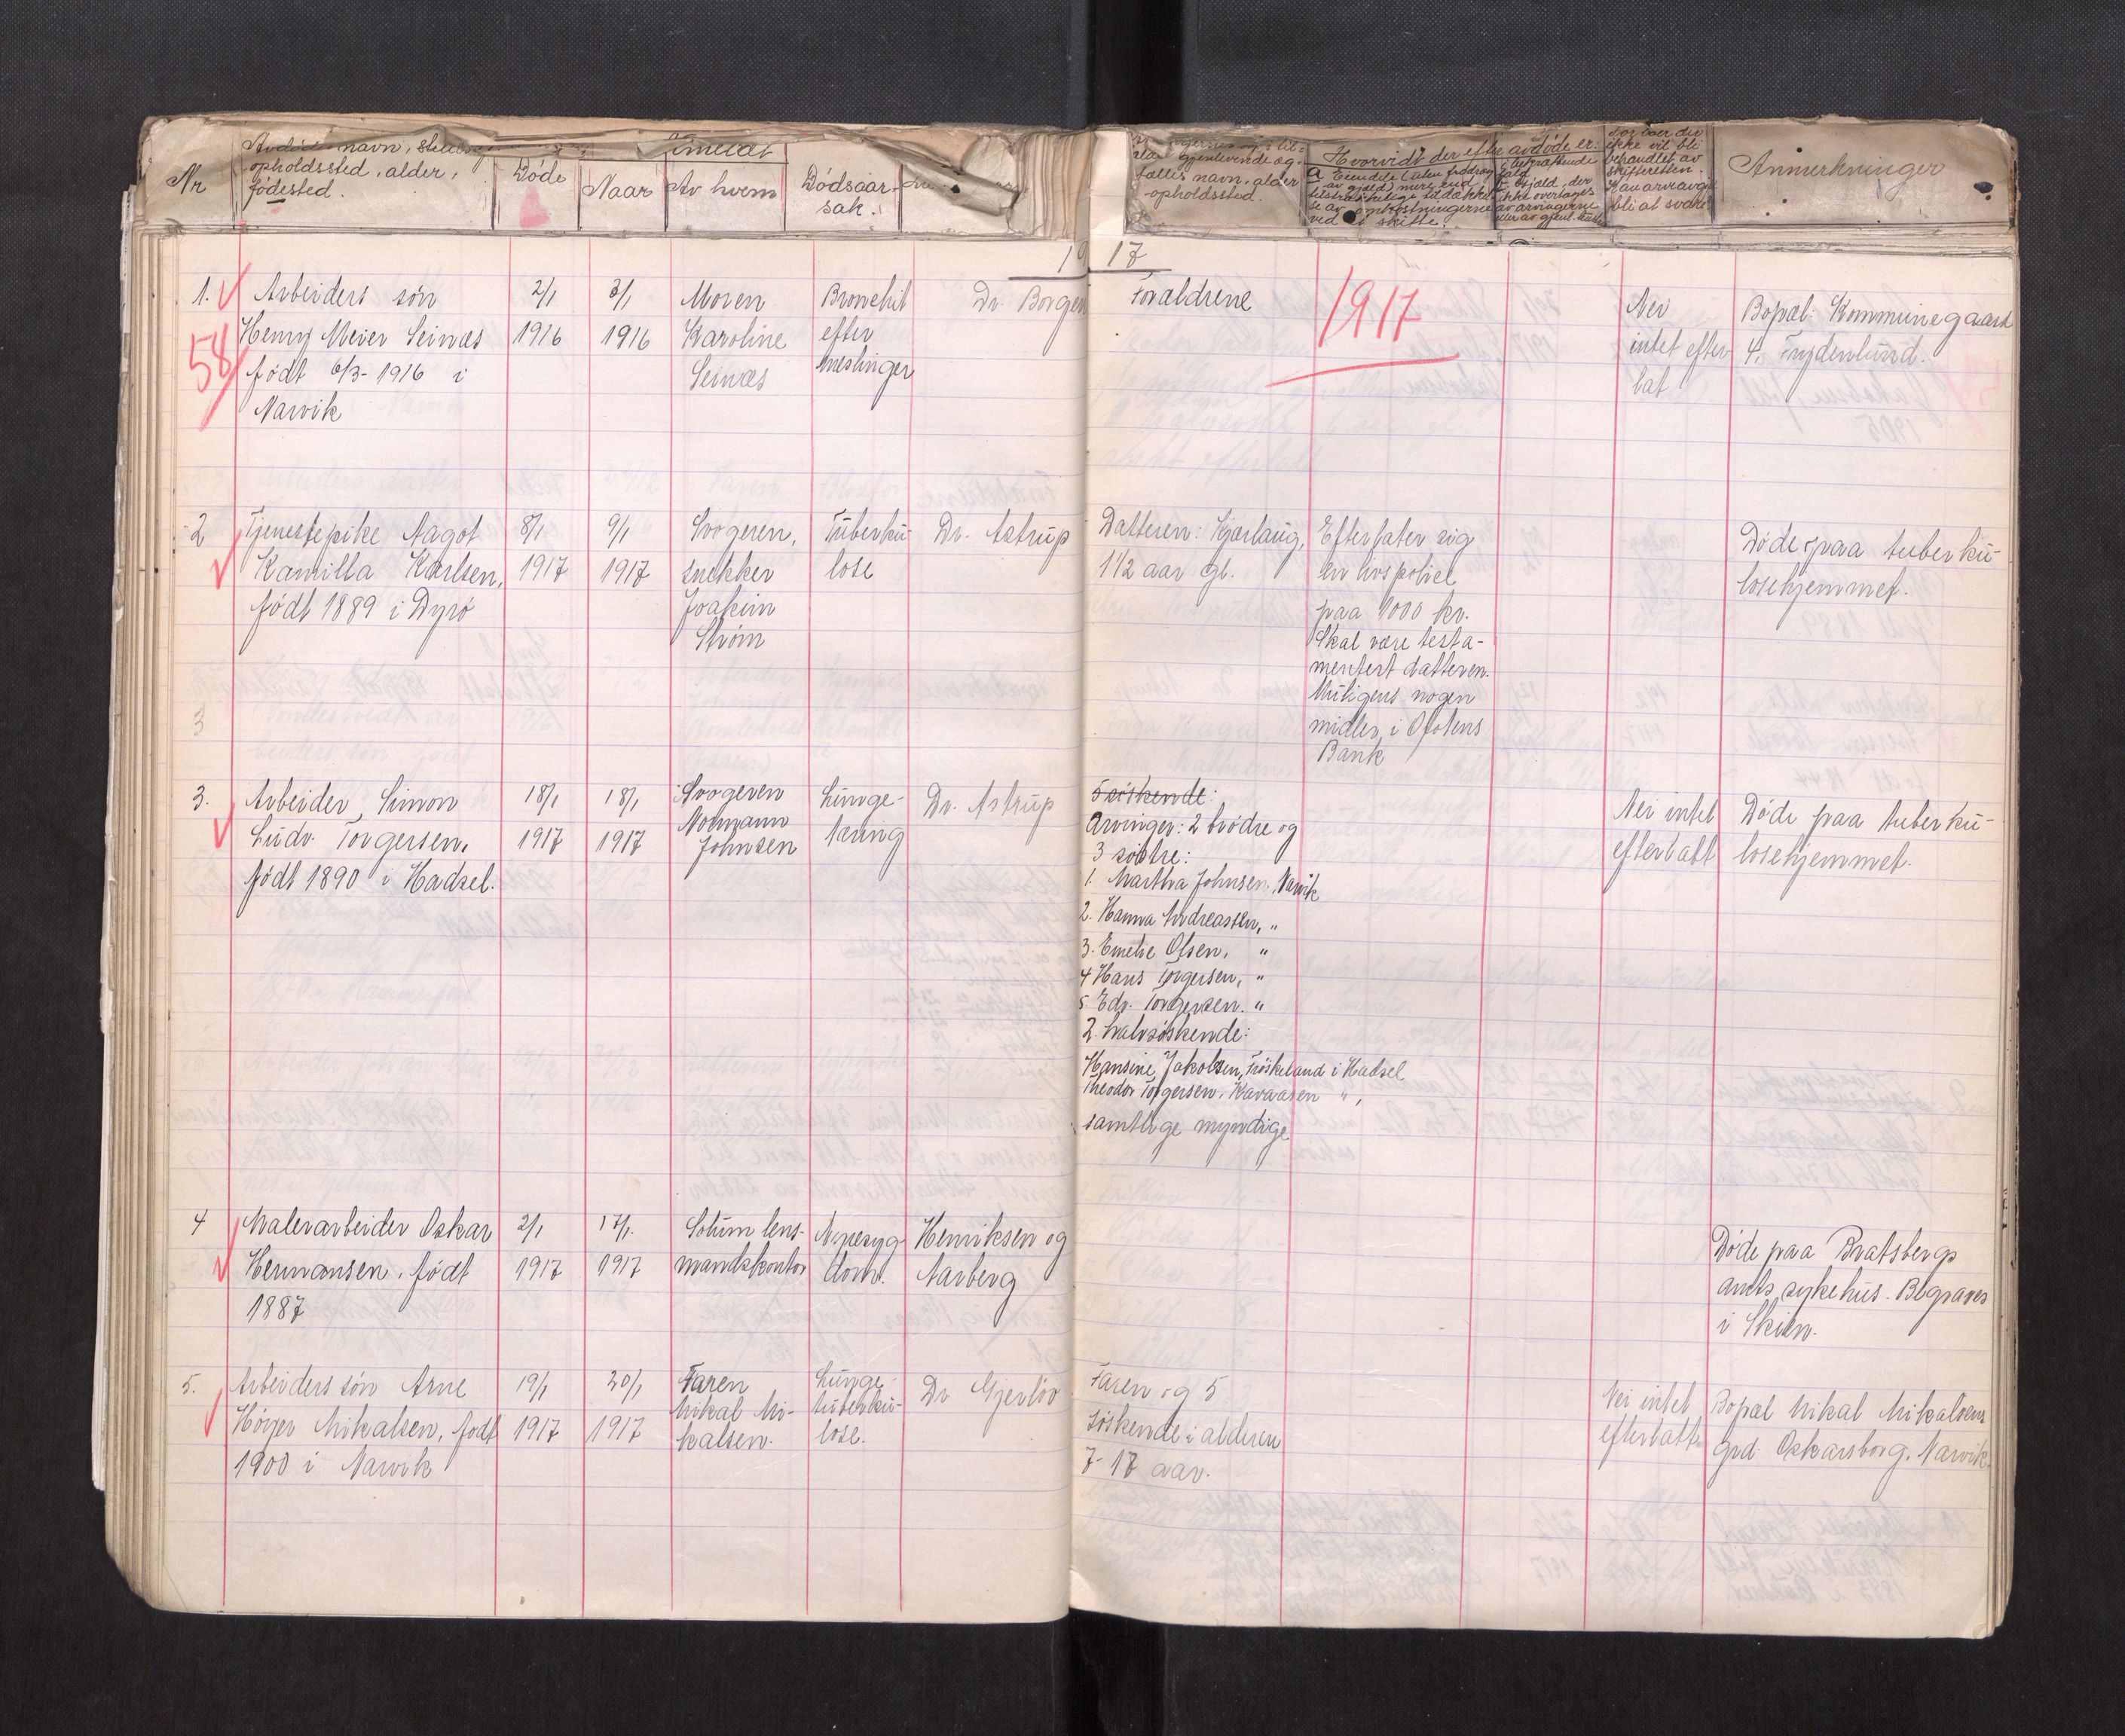 Nr
navn,
opholdssted, alder,
fødested.
Døde
Naar
Av hvem
Dødsaar-
sak.
gjenlevende æg-
tefælles navn, alder
opholdssted.
Hvorvidt der efter avdøde er:
ved et skifte.
ikke vil bli
behandlet av
skifteretten.
bli at svare
Anmerkninger
1917
1.
58
Arbeiders søn
Henry Meier Seines
født 6/3-1916 i
Narvik
2/1
1916
3/1
1916
Moren
Karoline
Seines
Bronchit
efter
meslinger
Dr. Borgen
Forældrene
1917
Nei
intet efter-
lat
Bopæl: Kommunegaard
4. Frydenlund.
2
Tjenestepike Aagot
Kamilla Karlsen,
født 1889 i Dyrø
8/1
1917
9/1
1917
Svogeren,
snekker
Joakim
Strøm
Tuberku-
lose
Dr. Astrup
Datteren: Kjærlaug,
1 1/2 aar gl.
Efterlater sig
en livspolice
paa 1000 kr.
Skal være testa-
mentert datteren.
Muligens nogen
midler i Ofotens
Bank
Døde paa tuberku-
losehjemmet.
3
3.
Arbeider, Simon
Ludv. Torgersen,
født 1890 i Hadsel.
18/1
1917
18/1
1917
Svogeren
Normann
Johnsen
Lunge-
tæring
Dr. Astrup
5 søskende:
Arvinger: 2 brødre og
3 søstre:
1. Martha Johnsen, Narvik
2. Hanna Andreassen, "
3. Emelie Olsen, "
4 Hans Torgersen, "
5. Edv. Torgersen. "
2 halvsøskende:
Hansine Jakobsen, Frøskeland i Hadsel
Theodor Torgersen, Kavaasen ",
samtlige myndige
Nei intet
efterlatt
Døde paa tuberku-
losehjemmet.
4
Malerarbeider Oskar
Hermansen, født
1887
2/1
1917
17/1.
1917
Solum lens-
mandskontor
Nyresyg-
dom.
Henriksen og
Aarberg
Døde paa Bratsbergs
amts sykehus. Begraves
i Skien.
5.
Arbeiders søn Arne
Høier Mikalsen, født
1900 i Narvik
19/1
1917
20/1
1917
Faren
Mikal Mi-
kalsen.
Lunge-
tuberku-
lose.
Dr Gjerløv
Faren og 5
søskende i alderen
7-17 aar.
Nei intet
efterlatt
Bopæl Mikal Mikalsens
grd Oskarsborg, Narvik.